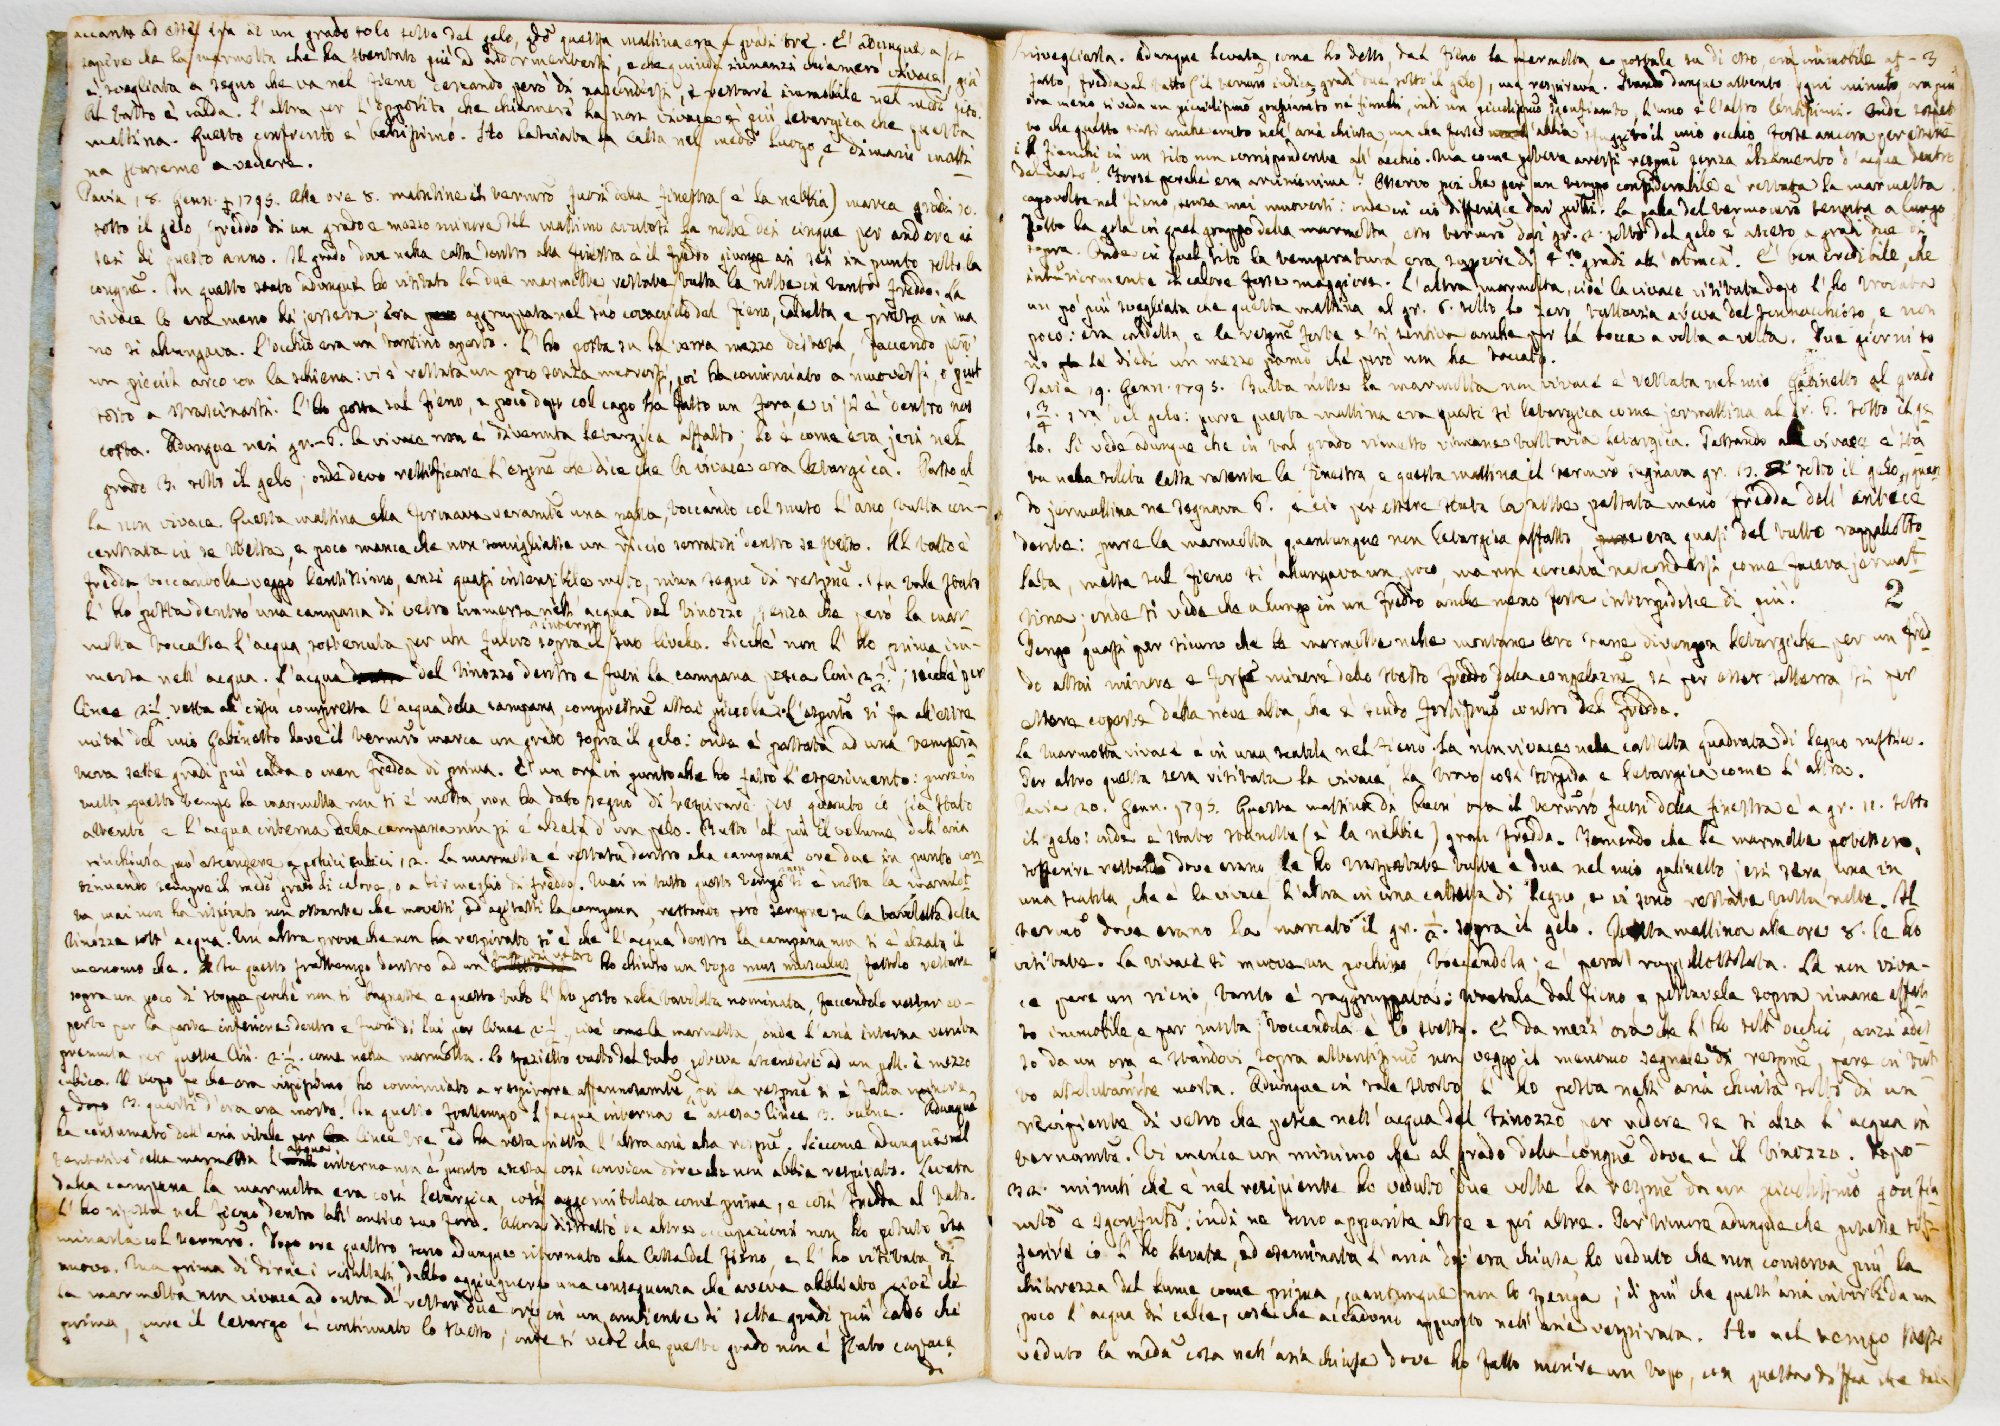 accanto ad esse era at un grado solo sotto del gelo, questa mattina era a quasi tre. E' adunque a
sapere che la marmotta che ha stentato più ad addormentarsi, e che quindi innanzi chiamerò vivace, già
è svegliata a segno che va nel fieno cercando però di nascondersi, e restare immobile nel med.o sito.
Al tatto è calda. L'altra per l'opposito, che chiamerò la non vivace è più letargica che questa
mattina. Questo confronto è bellissimo. Ho lasciata la cassa nel med.o luogo, e dimani matti
na saremo a vedere.
Pavia 18. Genn. 1795. Alle ore 8. mattutine il termro fuori della finestra (è la nebbia) marca gradi 10.
sotto il gelo, freddo di un grado e mezzo minore del massimo avutosi la notte dei cinque per andare ai
sei di questo anno. Il grado dove nella cassa dentro alla finestra è il freddo giunge ai sei in punto sotto la
congne. In questo stato adunque ho visitato le due marmotte restate tutta la notte in tanto freddo. La
vivace lo era meno di jersera, era aggruppata nel suo covacciolo del fieno, caldetta, e presa in ma
no si allungava. L'occhio era un tantino aperto. L'ho posta su la terra mezzo distesa, facendo però
un piccol arco con la schiena: vi è restata un poco senza muoversi, poi ha cominciato a muoversi, e piut
tosto a strascinarsi. L'ho posta sul fieno, e poco dopo col capo ha fatto un foro, e vi si è dentro nas
costa. Adunque nei gr. - 6. la vivace non è divenuta letargica affatto; lo è come era jeri nel
grado 3. sotto il gelo; onde devo rettificare l'espne che dice che la vivace era letargica. Passo al
la non vivace. Questa mattina ella formava veramte una palla, toccando col muso l'ano, tutta con-
centrata in se stessa, e poco manca che non somigliasse un riccio serratosi dentro se stesso. Al tatto è
fredda, toccandola veggo lentissimo, anzi quasi insensibile moto, niun segno di respne. In tale stato
l'ho posta dentro una campana di vetro immersa nell'acqua del tinozzo, senza che però la mar
motta toccasse l'acqua sostenuta per un fulcro sopra il suo livello. Sicché non l'ho prima im-
mersa nell'acqua. L'acqua del tinozzo dentro e fuori la campana pesca lin. 2 1/2; sicché per
linee 2 1/2. resta all'insù compressa l'acqua della campana, compressne assai piccola. L'esporto si fa all'estre
mità del mio Gabinetto dove il termro marca un grado sopra il gelo: onde è passata ad una tempera
tura sette gradi più calda o men fredda di prima. E' un ora in punto che ho fatto l'esperimento: pure in
tutto questo tempo la marmotta non si è mossa non ha dato segno di respirare per quanto ci sia stato
attento e l'acqua interna della campana non si è alzata d'un pelo. Tutto al più il volume dell'aria
rinchiusa può ascendere a pollici cubici 12. La marmotta è restata dentro alla campana ore due in punto con
tinuando sempre il med.o grado di calore, o a dir meglio di freddo. Mai in tutto questo tempo si è mossa la marmot
ta mai non ha respirato non ostante che movessi, ed agitassi la campana, restando però sempre su la tavoletta della
tinozza sott'acqua. Un altra prova che non ha respirato si è che l'acqua dentro la campana non si è alzata il
menomo che. In questo frattempo dentro ad un tubo di vetro ho chiuso un topo mus musculus, fattolo restare
sopra un poco di stoppa perché non si bagnasse e questo tubo l'ho posto nella tavoletta nominata, facendolo restar co-
perto per la parte inferiore dentro e fuori di lui per linee 2 1/2, cioè come la marmotta, onde l'aria interna veniva
premuta per queste lin. 2 1/2. come nella marmotta. Lo spazietto vuoto del tubo poteva ascendere ad un poll. e mezzo
cubico. Il topo che era vispissimo ho cominciato a respirare affannosamte, poi la respne si è fatta minore
e dopo 3. quarti d'ora era morto. In questo frattempo l'acqua interna è ascesa linee 3. buone. Adunque
ha consumato dell'aria vitale per linee tre, ed ha resa inetta l'altra aria alla respne. Siccome adunque nel
tentativo della marmotta l'acqua interna non è punto ascesa così convien dire che non abbia respirato. Levata
dalla campana la marmotta era così letargica, così aggomitolata come prima, e così fredda al tatto.
L'ho riposta nel fieno dentro all'antico suo foro. Allora distratto da altre occupazioni non ho potuto esa
minarla col termro. Dopo ore quattro sono adunque ritornato alla cassa del fieno, e l'ho visitata di
nuovo. Ma prima di dirne i risultati debbo aggiugnere una conseguenza che aveva obbliato cioè che
la marmotta non vivace ad onta di restar due ore in un ambiente di sette gradi più caldo che
prima, pure il letargo è continuato lo stesso; onde si vede che questo grado non è stato capace
di
3
risvegliarla. Adunque levata, come ho detto, dal fieno la marmotta, e postala su di esso, era immobile af-
fatto, fredda al tatto (il termro indica gradi due sotto il gelo), ma respirava. Stando dunque attento, ogni minuto ora più
ora meno si vede un piccolissimo gonfiamento ne' fianchi, indi un piccolissimo sgonfiamto, l'uno e l'altro lentissimi. Onde sospet
to che questo siasi anche avuto nell'aria chiusa, ma che forse abbia sfuggito il mio occhio, forse ancora per essere
i fianchi in un sito non corrispondente all'occhio. Ma come poteva aversi respne senza alzamento d'acqua dentro
del vaso? Forse perché era arcimenoma? Osservo poi che per un tempo considerabile è restata la marmotta
capovolta nel fieno, senza mai muoversi: onde in ciò differisce dai ghiri. La palla del termometro tenuta a lungo
sotto la gola in quel gruppo della marmotta, esso termro dai gr. 2. sotto del gelo è asceso a gradi due di
sopra. Onde in quel sito la temperatura era superiore di 4.ro gradi all'atmca. E' ben credibile, che
internamente il calore fosse maggiore. L'altra marmotta, cioè la vivace visitata dopo l'ho trovata
un pò più svegliata che questa mattina al gr. 6. sotto lo zero, tuttavia aveva del sonnacchioso, e non
poco: era caldetta, e la respne forte e si sentiva anche per la bocca a volta a volta. Due giorni so
no le diedi un mezzo pomo che però non ha toccato.
Pavia 19. Genn. 1795. Tutta notte la marmotta non vivace è restata nel mio Gabinetto al grado
1 3/4. sopra del gelo: pure questa mattina era quasi sì letargica come jermattina al gr. 6. sotto il ge
lo. Si vede adunque che in tal grado rimesso rimane tuttavia letargica. Passando alla vivace è sta
ta nella solita cassa rasente la finestra, e questa mattina il termro segnava gr. 3. sotto il gelo, quan
do jermattina ne segnava 6., e ciò per essere stata la notte passata meno fredda dell'antece
dente: pure la marmotta, quantunque non letargica affatto, era quasi del tutto rappallotto
lata, messa sul fieno si allungava un poco, ma non cercava nascondersi, come faceva jermat
tina; onde si vede che a lungo in un freddo anche meno forte intorpidisce di più. 2
Tengo quasi per sicuro che le marmotte nelle montane loro tane divengon letargiche per un fred
do assai minore e forse minore dello stesso freddo della congelazne, sì per esser sotterra, sì per
essere coperte dalla neve alta, che è scudo fortissimo contro del freddo.
La marmotta vivace è in una scatola nel fieno. La non vivace nella cassetta quadrata di legno rustico.
Per altro questa sera visitata la vivace, la trovo così torpida e letargica come l'altra.
Pavia 20. Genn. 1795. Questa mattina di buon' ora il termro fuori della finestra è a gr. 11. sotto
il gelo: onde è stato stanotte (è la nebbia) gran freddo. Temendo che le marmotte potessero
sofferire restando dove erano le ho trasportate tutte e due nel mio gabinetto jeri sera, una in
una scatola, che è la vivace, l'altra in una cassetta di legno, e vi sono restate tutta notte. Il
termro dove erano ha marcato il gr. 1/2. sopra il gelo. Questa mattina alle ore 8. le ho
visitate. La vivace si muove un pochino, toccandola; è però rappallottolata. La non viva-
ce pare un riccio, tanto è raggruppata: tiratala dal fieno e postavela sopra rimane affat
to immobile, e par morta; toccandola è lo stesso. E' da mezz'ora che l'ho sott'occhio, anzi ades
so da un ora e standovi sopra attentissimo non veggo il menomo segnale di respne, pare in tut
to assolutamte morta. Adunque in tale stato l'ho posta nell'aria chiusa sotto di un
recipiente di vetro che pesca nell'acqua del tinozzo per vedere se si alza l'acqua in
ternamte. Vi manca un minimo che al grado della congne dove è il tinozzo. Dopo
32. minuti che è nel recipiente ho veduto due volte la respne da un piccolissimo gonfia
mto e sgonfiamto; indi ne sono apparite altre e poi altre. Per timore adunque che potesse sof
ferire io l'ho levata, ed esaminata l'aria dov'era chiusa, ho veduto che non conserva più la
chiarezza del lume come prima, quantunque non lo spenga; di più che quest'aria intorbida un
poco l'acqua di calce, cose che accadono appunto nell'aria respirata. Ho nel tempo stesso
veduto la meda cosa nell'aria chiusa dove ho fatto morire un topo, con questa